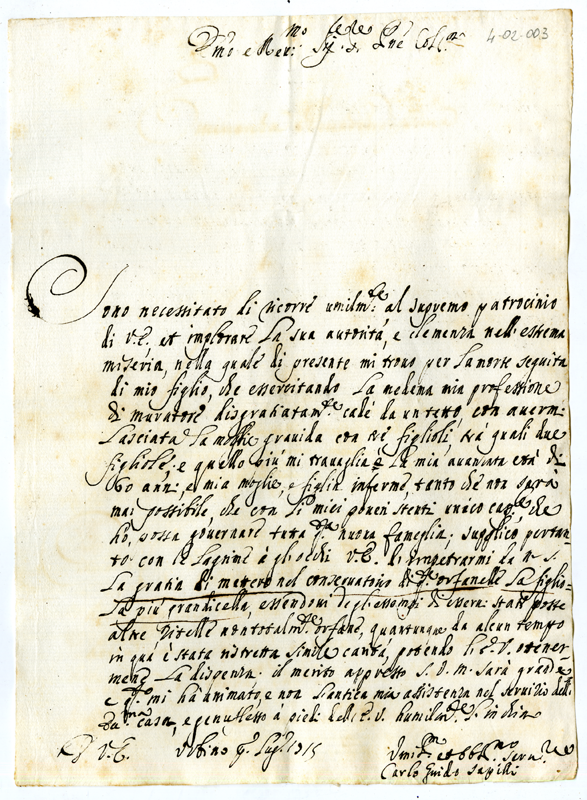 4-02-003
Sono necessitato di ricorre umilm.te al supremo patrocinio
di V.E. et implorare La sua autorità, e clemenza nell'estrema
miseria, nella quale di presente mi trovo per la morte seguita
di mio figlio, che essercitando La medema mia professione
di muratore disgratiatam.te cadè da un tetto con averm:
Lasciata La moglie gravida con trè figlioli, trà quali due
figliole; e quello più mi travaglia è La mia avanzata età di
60 anni e mia moglie, e figlie inferme, tanto che non sarà
mai possibile, che con li miei poveri stenti unico cap.le che
hò, possa governare tutta q.ta nuova fameglia; supplico pertan-
to con le Lagrime à gli occhi V.E. di impetrarmi da N.S.
La gratia di mettere nel conservatorio di q.te orfanelle La figlio-
la più grandicella, essendovi degli essempi di essere state poste
altre Zitelle non totalm.te orfane, quantunque da alcun tempo
in quà è stata ristretta simile carità, potendo l'E.V. ottener
mene La dispenza. il merito appresso S.D.M. sarà grande
e q.to mi hà animato, e non l'antica mia assistenza nel servizio della
casa, e genuflesso a piedi dell'E.V. humilm.te l'inchino
Di V.E. Urbino 9 Lugl.o 1715
Umil.mo et obblig.mo Serv.re
Carlo Guido